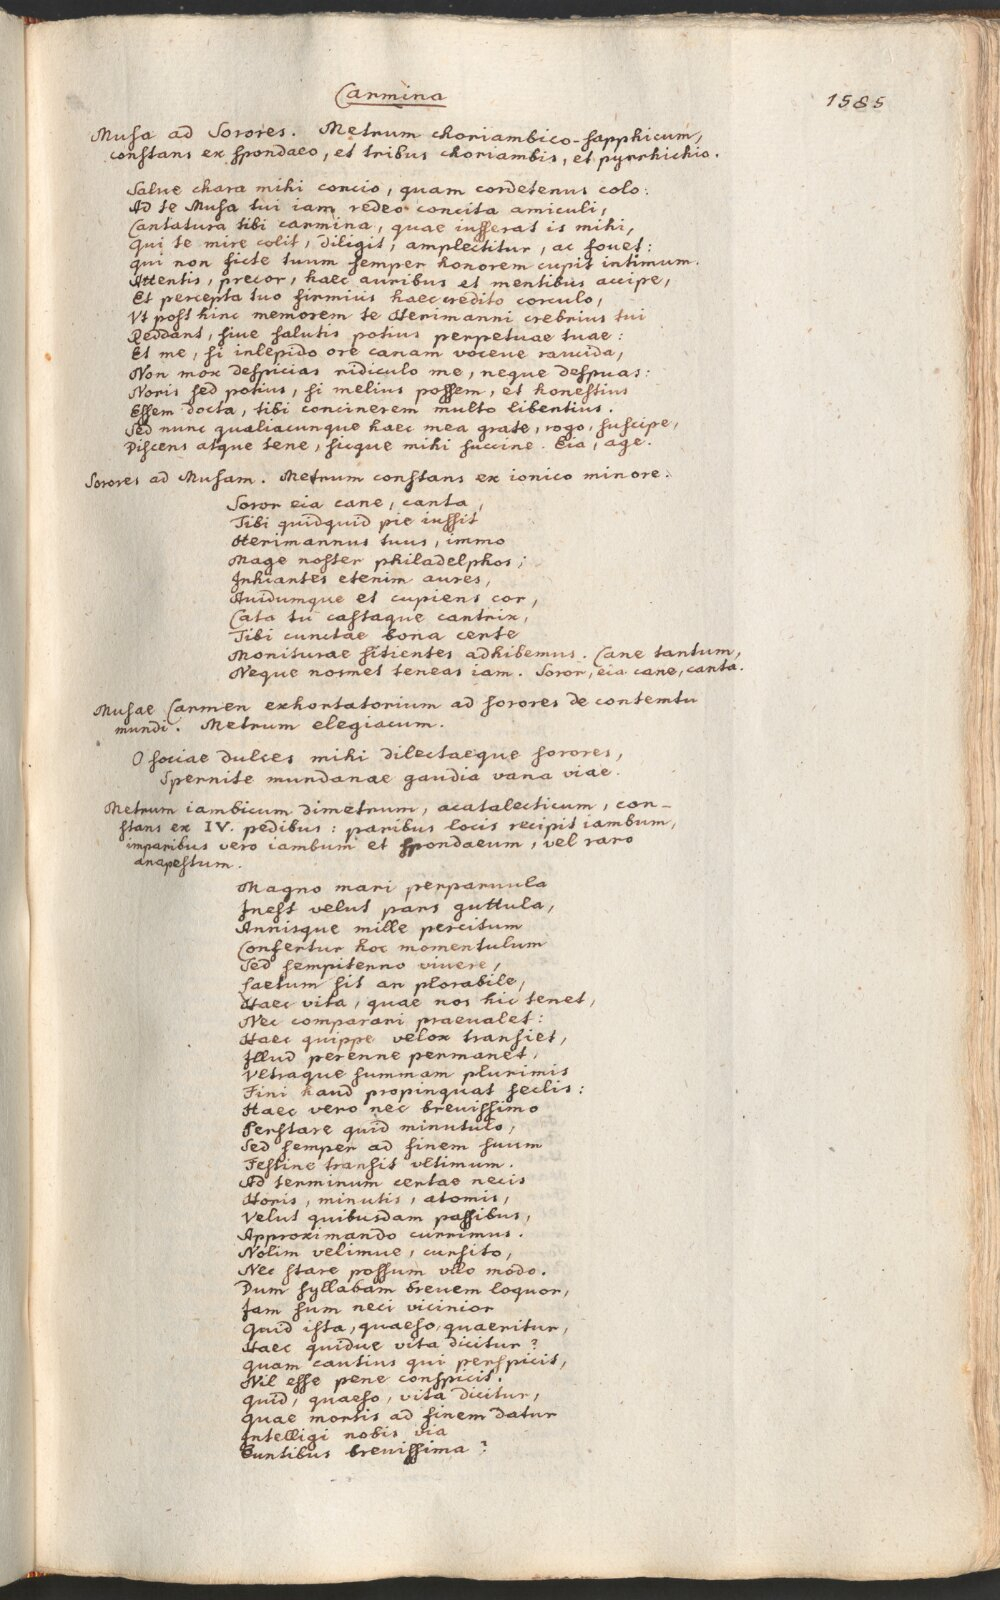 Carmina
1585
Musa ad Sorores. Metrum choriambico-sapphicum,
constans ex spondaeo, et tribus choriambis, et pyrrhichio.
Salue chara mihi concio, quam cordetenus colo:
Ad te Musa tui iam redeo concita amiculi,
Cantatura tibi carmina, quae iusserat is mihi,
Qui te mire colit, diligit, amplectitur, ac fouet:
Qui non ficte tuum semper honorem cupit intimum.
Attentis, precor, haec auribus et mentibus accipe,
Et percepta tuo firmius haec credito corculo,
Vt post hinc memorem te Herimanni crebrius tui
Reddant, siue salutis potius perpetuae tuae:
Et me, si inlepido ore canam voceue rancida,
Non mox despicias ridiculo me, neque despuas:
Noris sed potius, si melius possem, et honestius
Essem docta, tibi concinerem multo libentius.
Sed nunc qualiacunque haec mea grate, rogo, suscipe,
Discens atque tene, sicque mihi succine. Eia, age.
Sorores ad Musam. Metrum constans ex ionico minore.
Soror eia cane, canta,
Tibi quidquid pie iussit
Herimannus tuus, immo
Mage noster philadelphos;
Inhiantes etenim aures,
Auidumque et cupiens cor,
Cata tu castaque cantrix,
Tibi cunctae bona certe
Moniturae sitientes adhibemus. Cane tantum,
Neque nosmet teneas iam. Soror, eia cane, canta.
Musae Carmen exhortatorium ad sorores de contemtu
mundi. Metrum elegiacum.
O sociae dulces mihi dilectaeque sorores,
Spernite mundanae gaudia vana viae.
Metrum iambicum dimetrum, acatalecticum, con-
stans ex IV. pedibus: paribus locis recipit iambum,
imparibus vero iambum et spondaeum, vel raro
anapestum.
Magno mari perparuula
Inest velut pars guttula,
Annisque mille percitum
Confertur hoc momentulum
Sed sempiterno viuere,
Laetum sit an plorabile,
Haec vita, quae nos hic tenet,
Nec comparari praeualet:
Haec quippe velox transiet,
Illud perenne permanet,
Vtraque summam plurimis
Fini haud propinquat seclis:
Haec vero nec breuissimo
Perstare quid minutulo,
Sed semper ad finem suum
Festine transit vltimum.
Ad terminum certae necis
Horis, minutis, atomis,
Velut quibusdam passibus,
Approximando currimus.
Nolim velimue, cursito,
Nec stare possum vllo modo.
Dum syllabam breuem loquor,
Iam sum neci vicinior
Quid ista, quaeso, quaeritur,
Haec quidue vita dicitur?
Quam cautius qui perspicit,
Nil esse pene conspicit.
Quid, quaeso, vita dicitur,
Quae mortis ad finem datur
Intelligi nobis via
Euntibus breuissima?